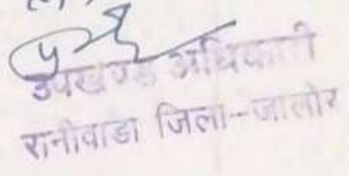 उपखण्ड अधिकारी
रानीवाडा जिला--जालोर